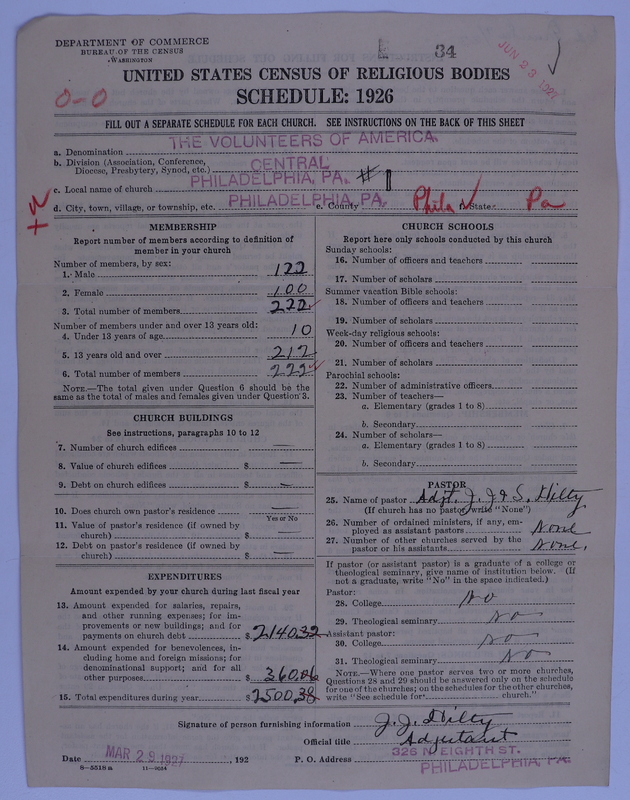 DEPARTMENT OF COMMERCE
BUREAU OF THE CENSUS
WASHINGTON
34
JUN 23 1927
UNITED STATES CENSUS OF RELIGIOUS BODIES
SCHEDULE: 1926
0-0
FILL OUT A SEPARATE SCHEDULE FOR EACH CHURCH. SEE INSTRUCTIONS ON THE BACK OF THIS SHEET
a. Denomination THE VOLUNTEERS OF AMERICA.
b. Division (Association, Conference, Diocese, Presbytery, Synod, etc.) CENTRAL
c. Local name of church PHILADELPHIA, PA. #1
d. City, town, village, or township, etc. PHILADELPHIA, PA. e. County Phila f. State Pa
MEMBERSHIP
Report number of members according to definition of
member in your church
Number of members, by sex:
1. Male 122
2. Female 100
3. Total number of members 222
Number of members under and over 13 years old:
4. Under 13 years of age 10
5. 13 years old and over 212
6. Total number of members 222
NOTE.—The total given under Question 6 should be
same as the total of males and females given under Question 3.
CHURCH BUILDINGS
See instructions, paragraphs 10 to 12
7. Number of church edifices —
8. Value of church edifices $ —
9. Debt on church edifices $ —
10. Does church own pastor's residence —
Yes or No
11. Value of pastor's residence (if owned by
church) $ —
12. Debt on pastor's residence (if owned by
church) $ —
EXPENDITURES
Amount expended by your church during last fiscal year
13. Amount expended for salaries, repairs,
and other running expenses; for im-
provements or new buildings; and for
payments on church debt $ 2140.32
14. Amount expended for benevolences, in-
cluding home and foreign missions; for
denominational support; and for all
other purposes $ 360.06
15. Total expenditures during year $ 2500.38
CHURCH SCHOOLS
Report here only schools conducted by this church
Sunday schools:
16. Number of officers and teachers
17. Number of scholars
Summer vacation Bible schools:
18. Number of officers and teachers
19. Number of scholars
Week-day religious schools:
20. Number of officers and teachers
21. Number of scholars
Parochial schools:
22. Number of administrative officers
23. Number of teachers—
a. Elementary (grades 1 to 8)
b. Secondary
24. Number of scholars—
a. Elementary (grades 1 to 8)
b. Secondary
PASTOR
25. Name of pastor Adjt. J. J. & S. Hilty
(If church has no pastor, write "None")
26. Number of ordained ministers, if any, em-
ployed as assistant pastors None
27. Number of other churches served by the
pastor or his assistants None.
If pastor (or assistant pastor) is a graduate of a college or
theological seminary, give name of institution below. (If
not a graduate, write "No" in the space indicated.)
Pastor:
28. College No
29. Theological seminary No
Assistant pastor:
30. College No
31. Theological seminary No
NOTE.—Where one pastor serves two or more churches,
Questions 28 and 29 should be answered only on the schedule
for one of the churches; on the schedules for the other churches,
write "See schedule for church."
Signature of person furnishing information J. J. Hilty
Official title Adjutant
Date MAR 29 1927, 192 P. O. Address 326 N. EIGHTH ST.
PHILADELPHIA, PA.
8—5518a 11—9034